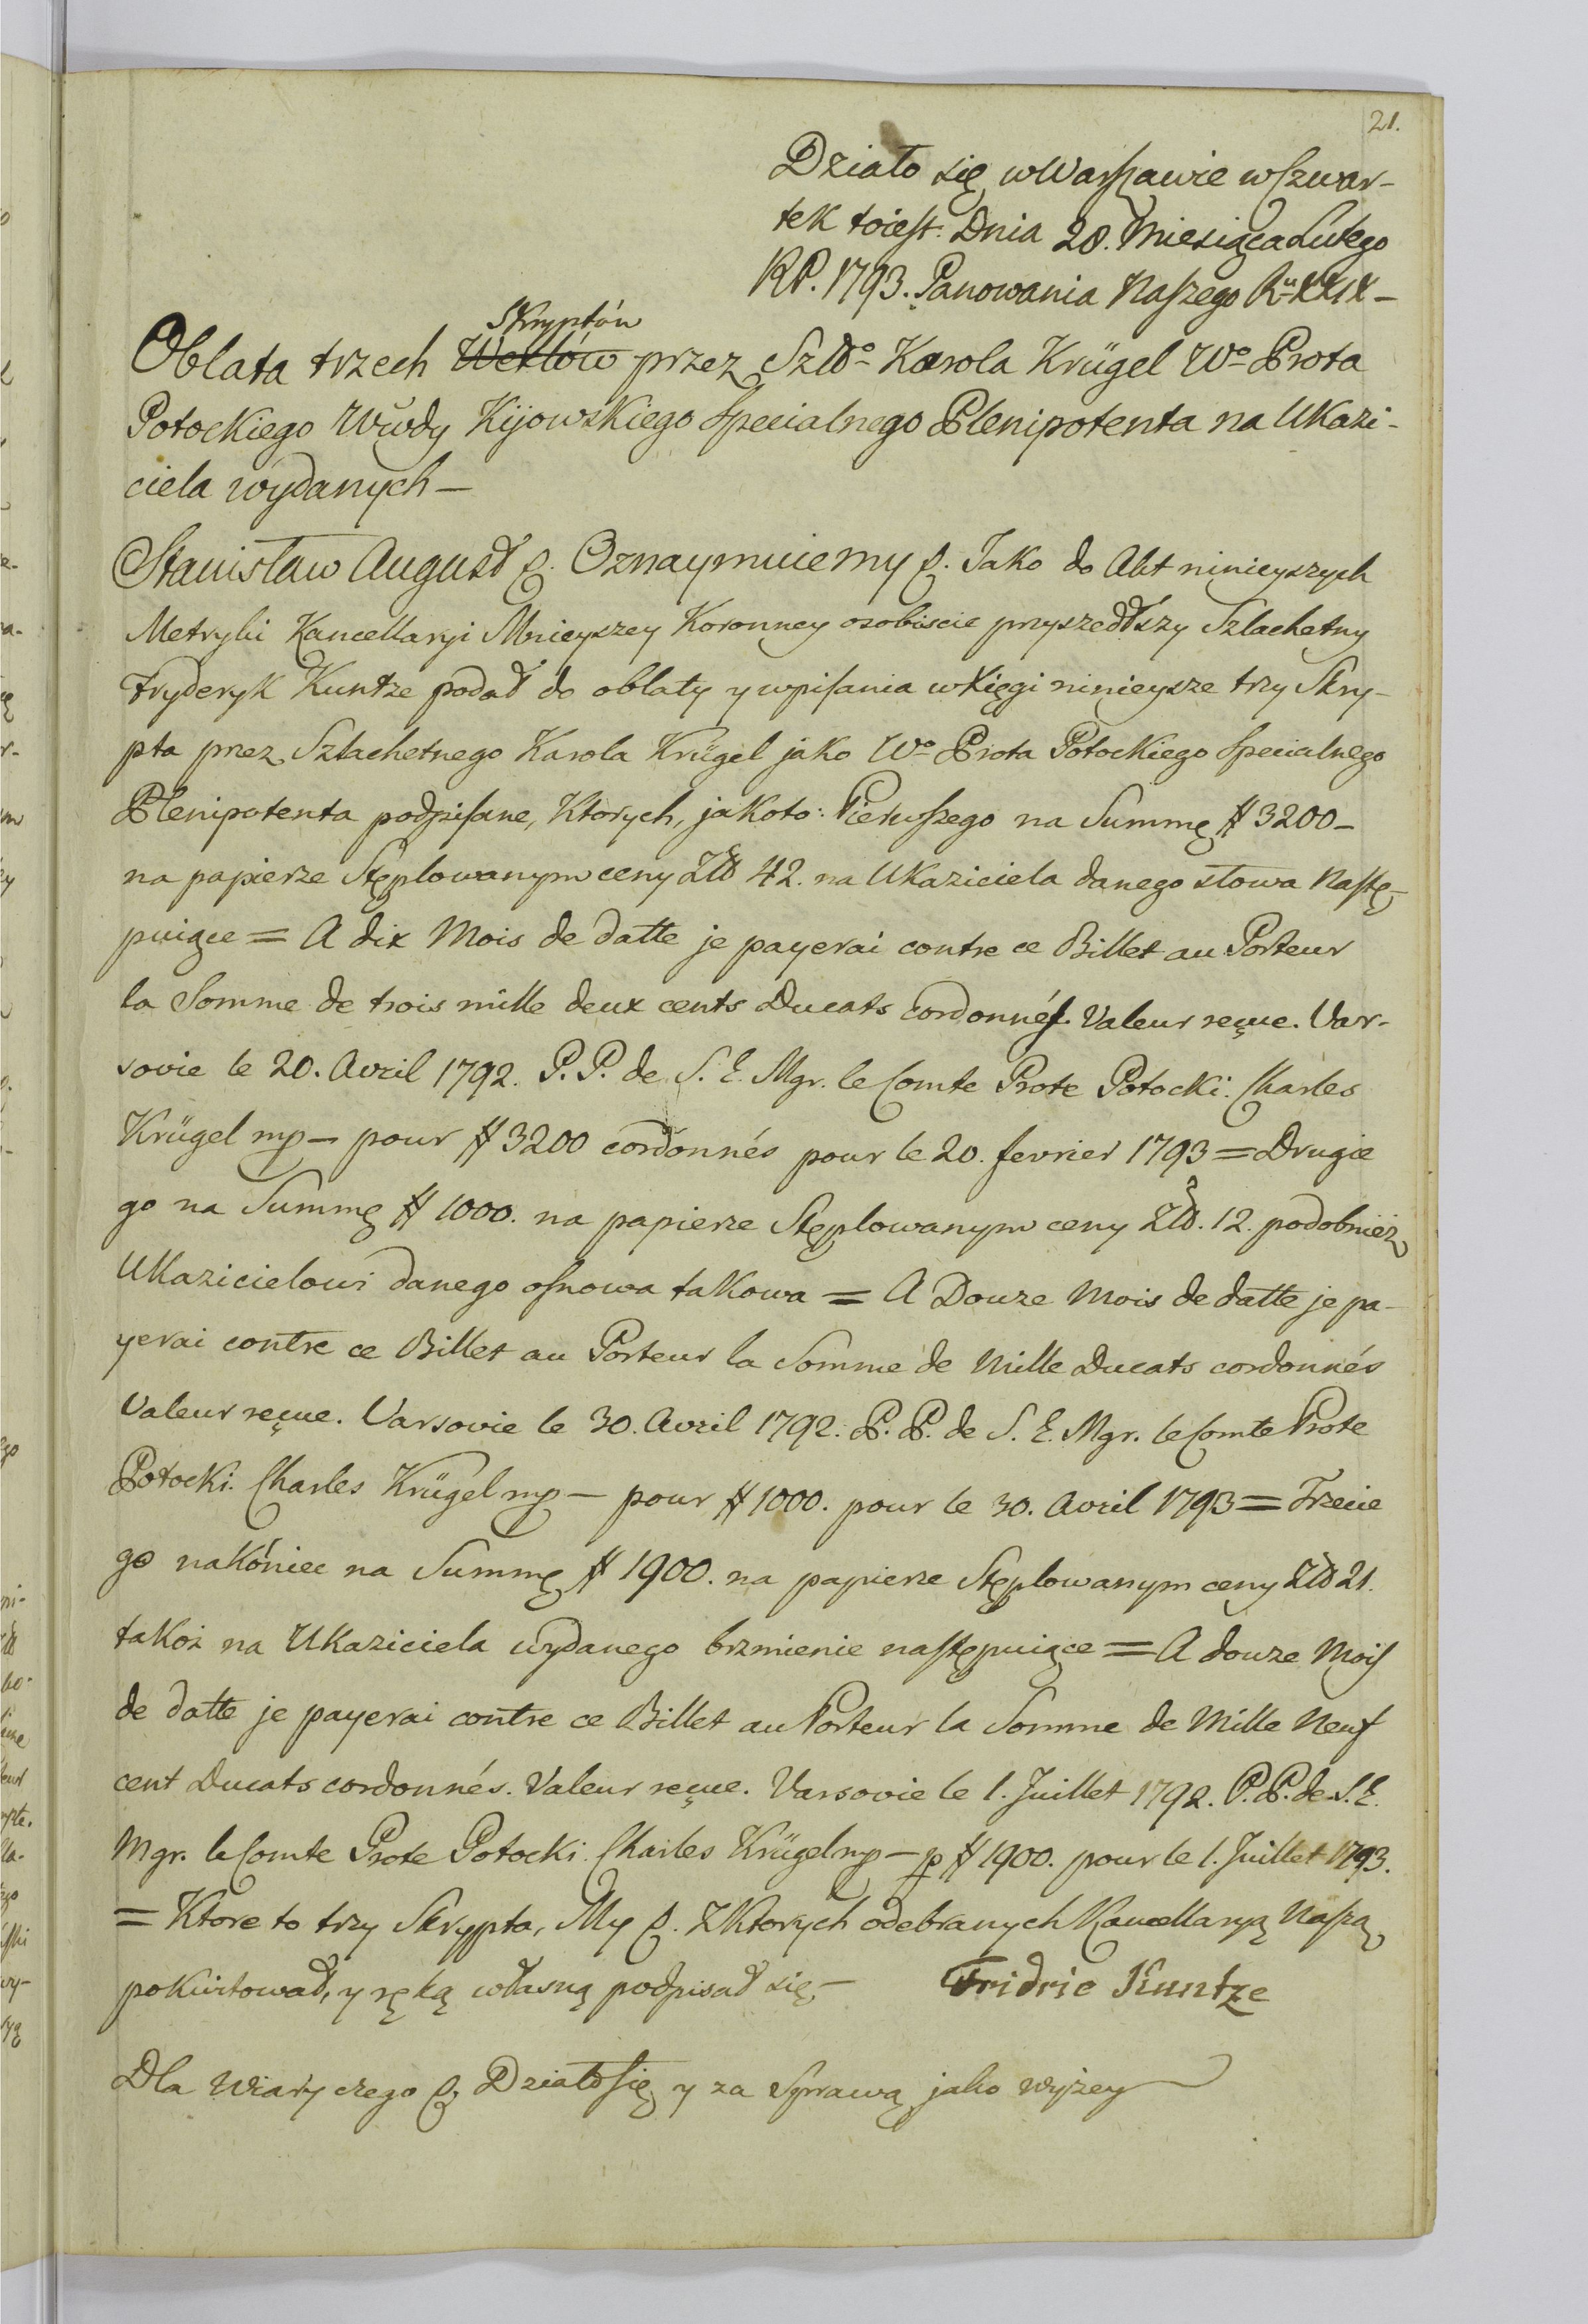 21.
Działo się w Warszawie w Czwar-
tek toiest. Dnia 28. Miesiąca Lutego
RP. 1793. Panowania Naszego Ru XXIX-
Skryptów
Oblata trzech Wexlów przez Szldo Karola Krügel Wo Prota
Potockiego Wwdy Kijowskiego Specialnego Plenipotenta na Ukazi-
ciela wydanych—
Stanisław August &. Oznaymuiemy &. Jako do Akt ninieyszych
Metryki Kancellaryi Mnieyszey Koronney osobiscie przyszedłszy Szlachetny
Fryderyk Kuntze podał do oblaty y wpisania w Xięgi ninieysze trzy Skry-
pta przez Szlachetnego Karola Krügel jako Wo Prota Potockiego Specialnego
Plenipotenta podpisane, Ktorych, jakoto: Pierwszego na Summę # 3200-
na papierze Stęplowanym ceny Złł 42. na Ukaziciela danego słowa Nastę-
puiące = A dix Mois de datte je payerai contre ce Billet au Porteur
la Somme de trois mille deux cents Ducats cordonnés. Valeur reçue. Var-
sovie le 20. Avril 1792. P. P. de S. E. Mgr. le Comte Prote Potocki. Charles
Krügel mp — pour # 3200 cordonnés pour le 20. fevrier 1793 = Drugie
go na Summę # 1000. na papierze Stęplowanym ceny Złł. 12. podobnież
Ukazicielowi danego osnowa takowa = A Douze Mois de datte je pa-
yerai contre ce Billet au Porteur la Somme de Mille Ducats cordonnés
Valeur reçue. Varsovie le 30. Avril 1792. P. P. de S. E. Mgr. le Comte Prote
Potocki. Charles Krügel mp — pour # 1000. pour le 30. Avril 1793 = Trzecie
go nakóniec na Summę # 1900. na papierze Stęplowanym ceny Złł 21.
takoż na Ukaziciela wydanego brzmienie następuiące = A douze Mois
de datte je payerai contre ce Billet au Porteur la Somme de Mille Neuf
cent Ducats cordonnés. Valeur reçue. Varsovie le 1. Juillet 1792. P. P. de S. E.
Mgr. le Comte Prote Potocki. Charles Krügel mp — p # 1900. pour le 1. Juillet 1793.
= Ktore to trzy Skrypta, My &. Z Ktorych odebranych Kancellaryą Naszą
pokwitował, y ręką własną podpisał się,— Fridric Kuntze
Dla Wiary czego & Działo się y za Sprawą jako wyżey